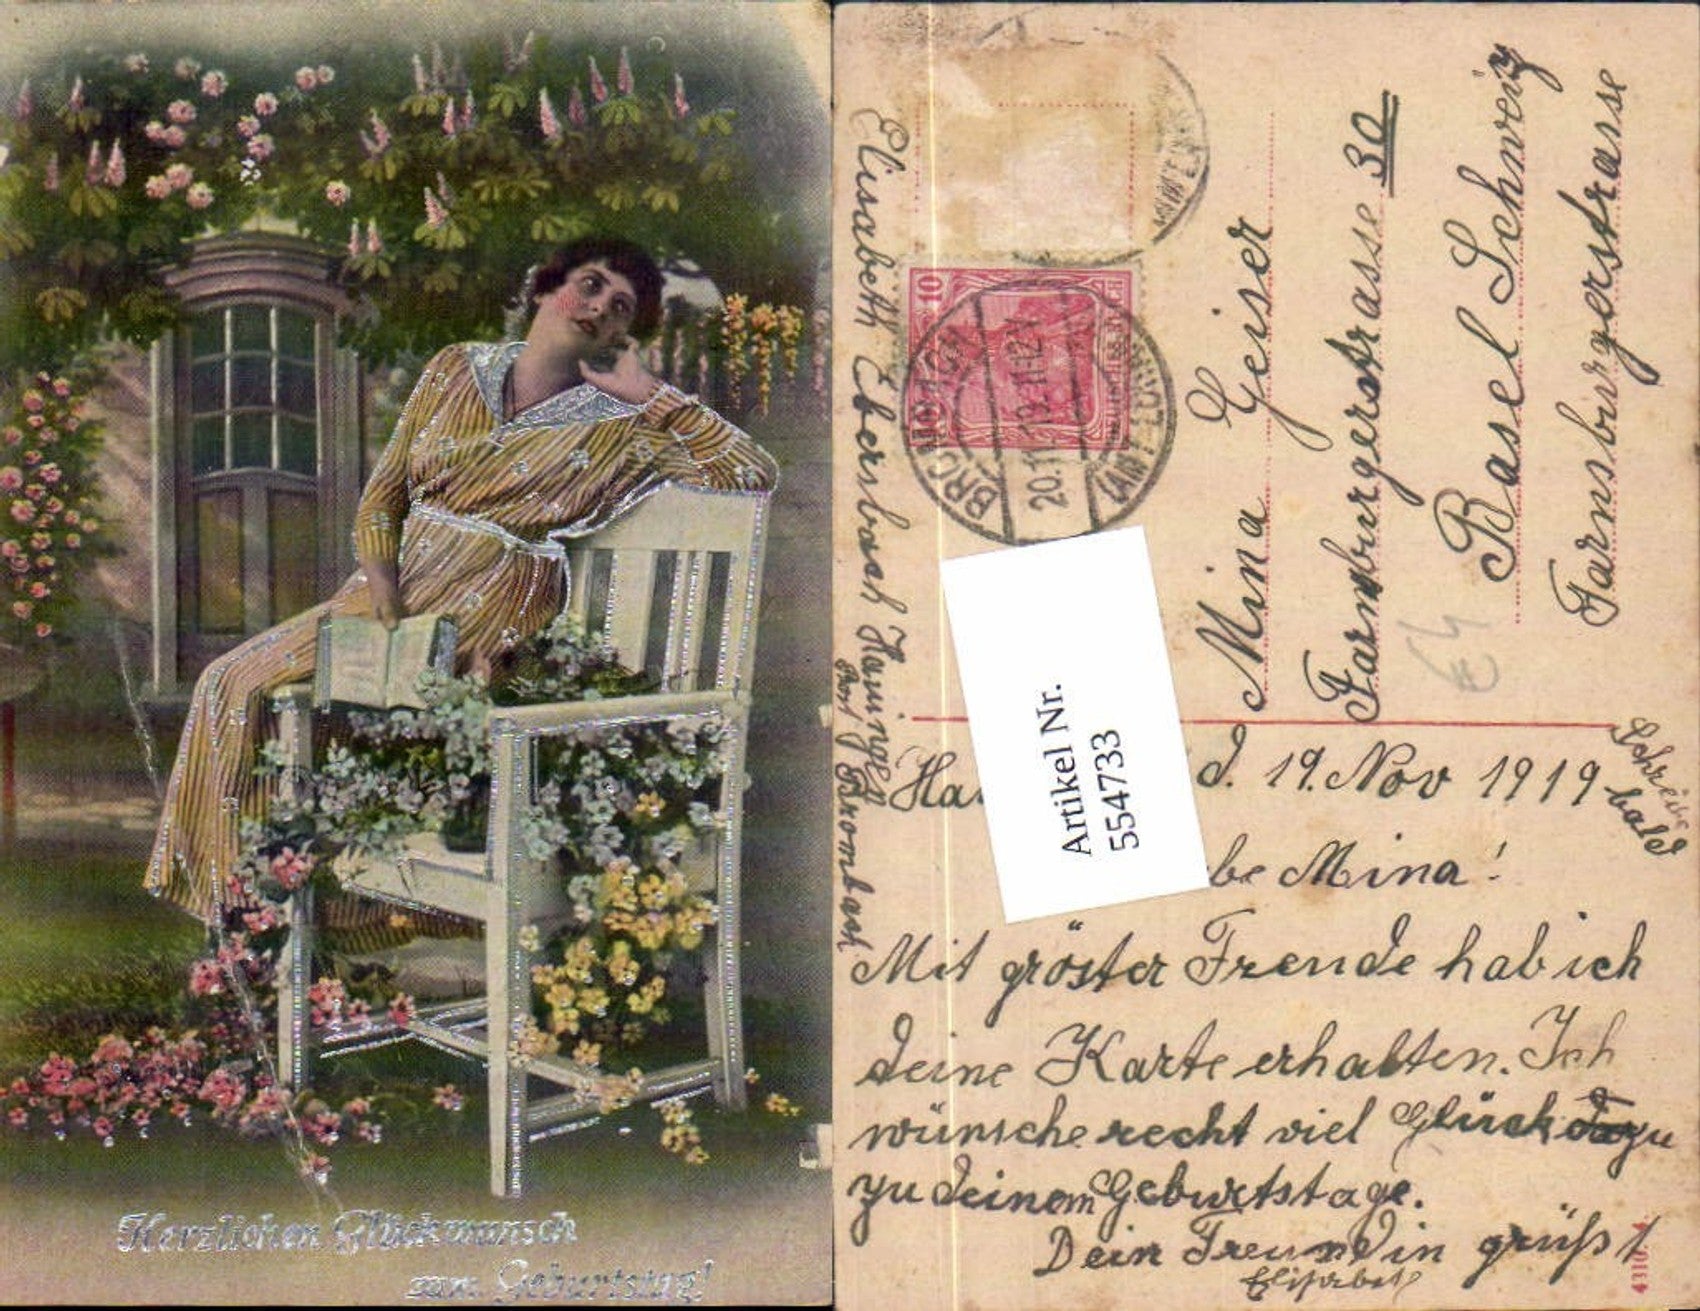 Herzlichen Glückwunsch
zum Geburtstag!
Elisabeth Ebersbach Hauingen
Amt Brombach
10
20.11.19.11-12V
Mina Geiser
Farnsburgerstrasse 30
Basel Schweiz
Farnsburgerstrasse
Artikel Nr.
554733
d. 19. Nov 1919
Schreibe
bald
Mina!
Mit gröster Freude hab ich
deine Karte erhalten. Ich
wünsche recht viel Glück
zu deinem Geburtstage.
Dein Freundin grüßt
Elisabeth
4310